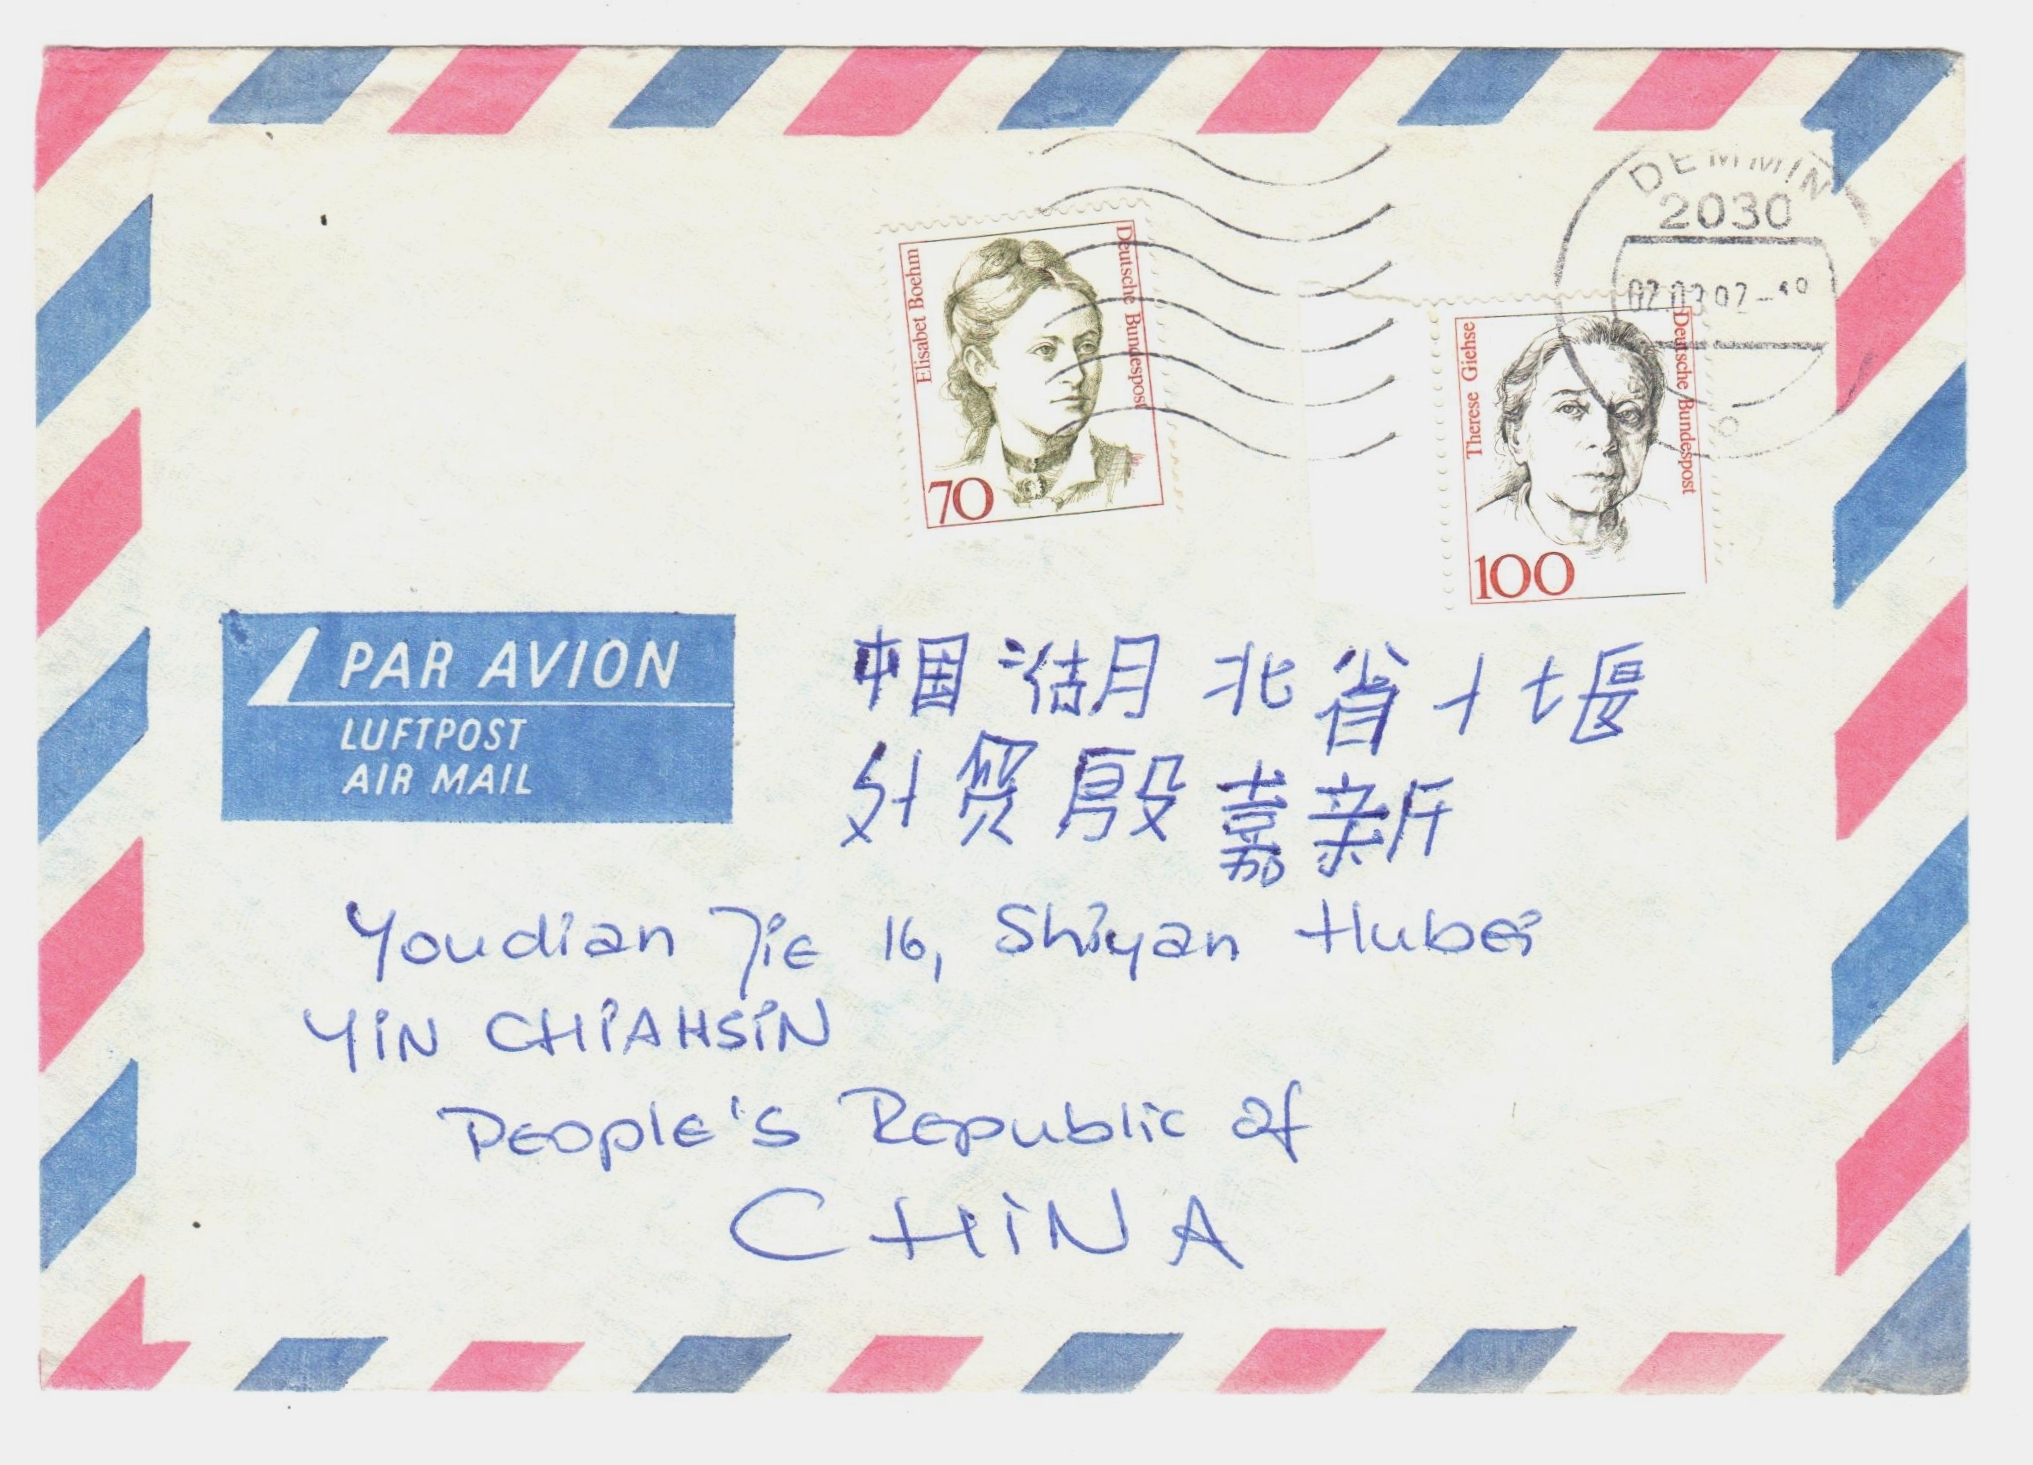 DEMMIN
2030
Elisabet Boehm
Deutsche Bundespost
70
Therese Giehse
Deutsche Bundespost
100
PAR AVION
LUFTPOST
AIR MAIL
中国湖北省十堰
外贸殷嘉新
Youdian Jie 16, Shiyan Hubei
YIN CHIAHSIN
People's Republic of
CHINA